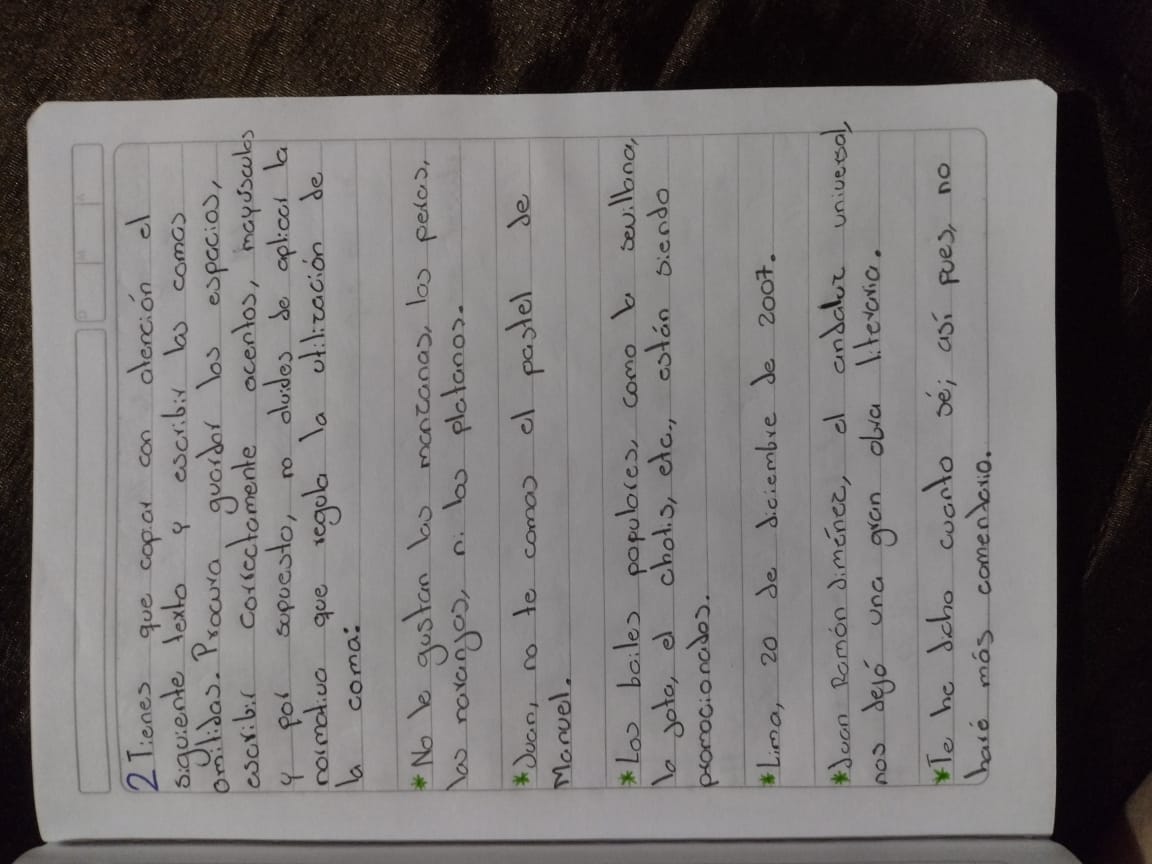 2 Tienes que copiar con atención el
siguiente texto y escribir las comas
omitidas. Procura guardar los espacios,
escribir correctamente acentos, mayúsculas
y por supuesto, no olvides de aplicar la
normativa que regula la utilización de
la coma:
* No le gustan las manzanas, las peras,
las naranjas, ni los platanos.
* Juan, no te comas el pastel de
Manuel.
* Los bailes populares, como la sevillana,
la jota, el chotis, etc., están siendo
promocionados.
* Lima, 20 de diciembre de 2007.
* Juan Ramón Jiménez, el andaluz universal,
nos dejó una gran obra literaria.
* Te he dicho cuanto sé; así pues, no
haré más comentario.